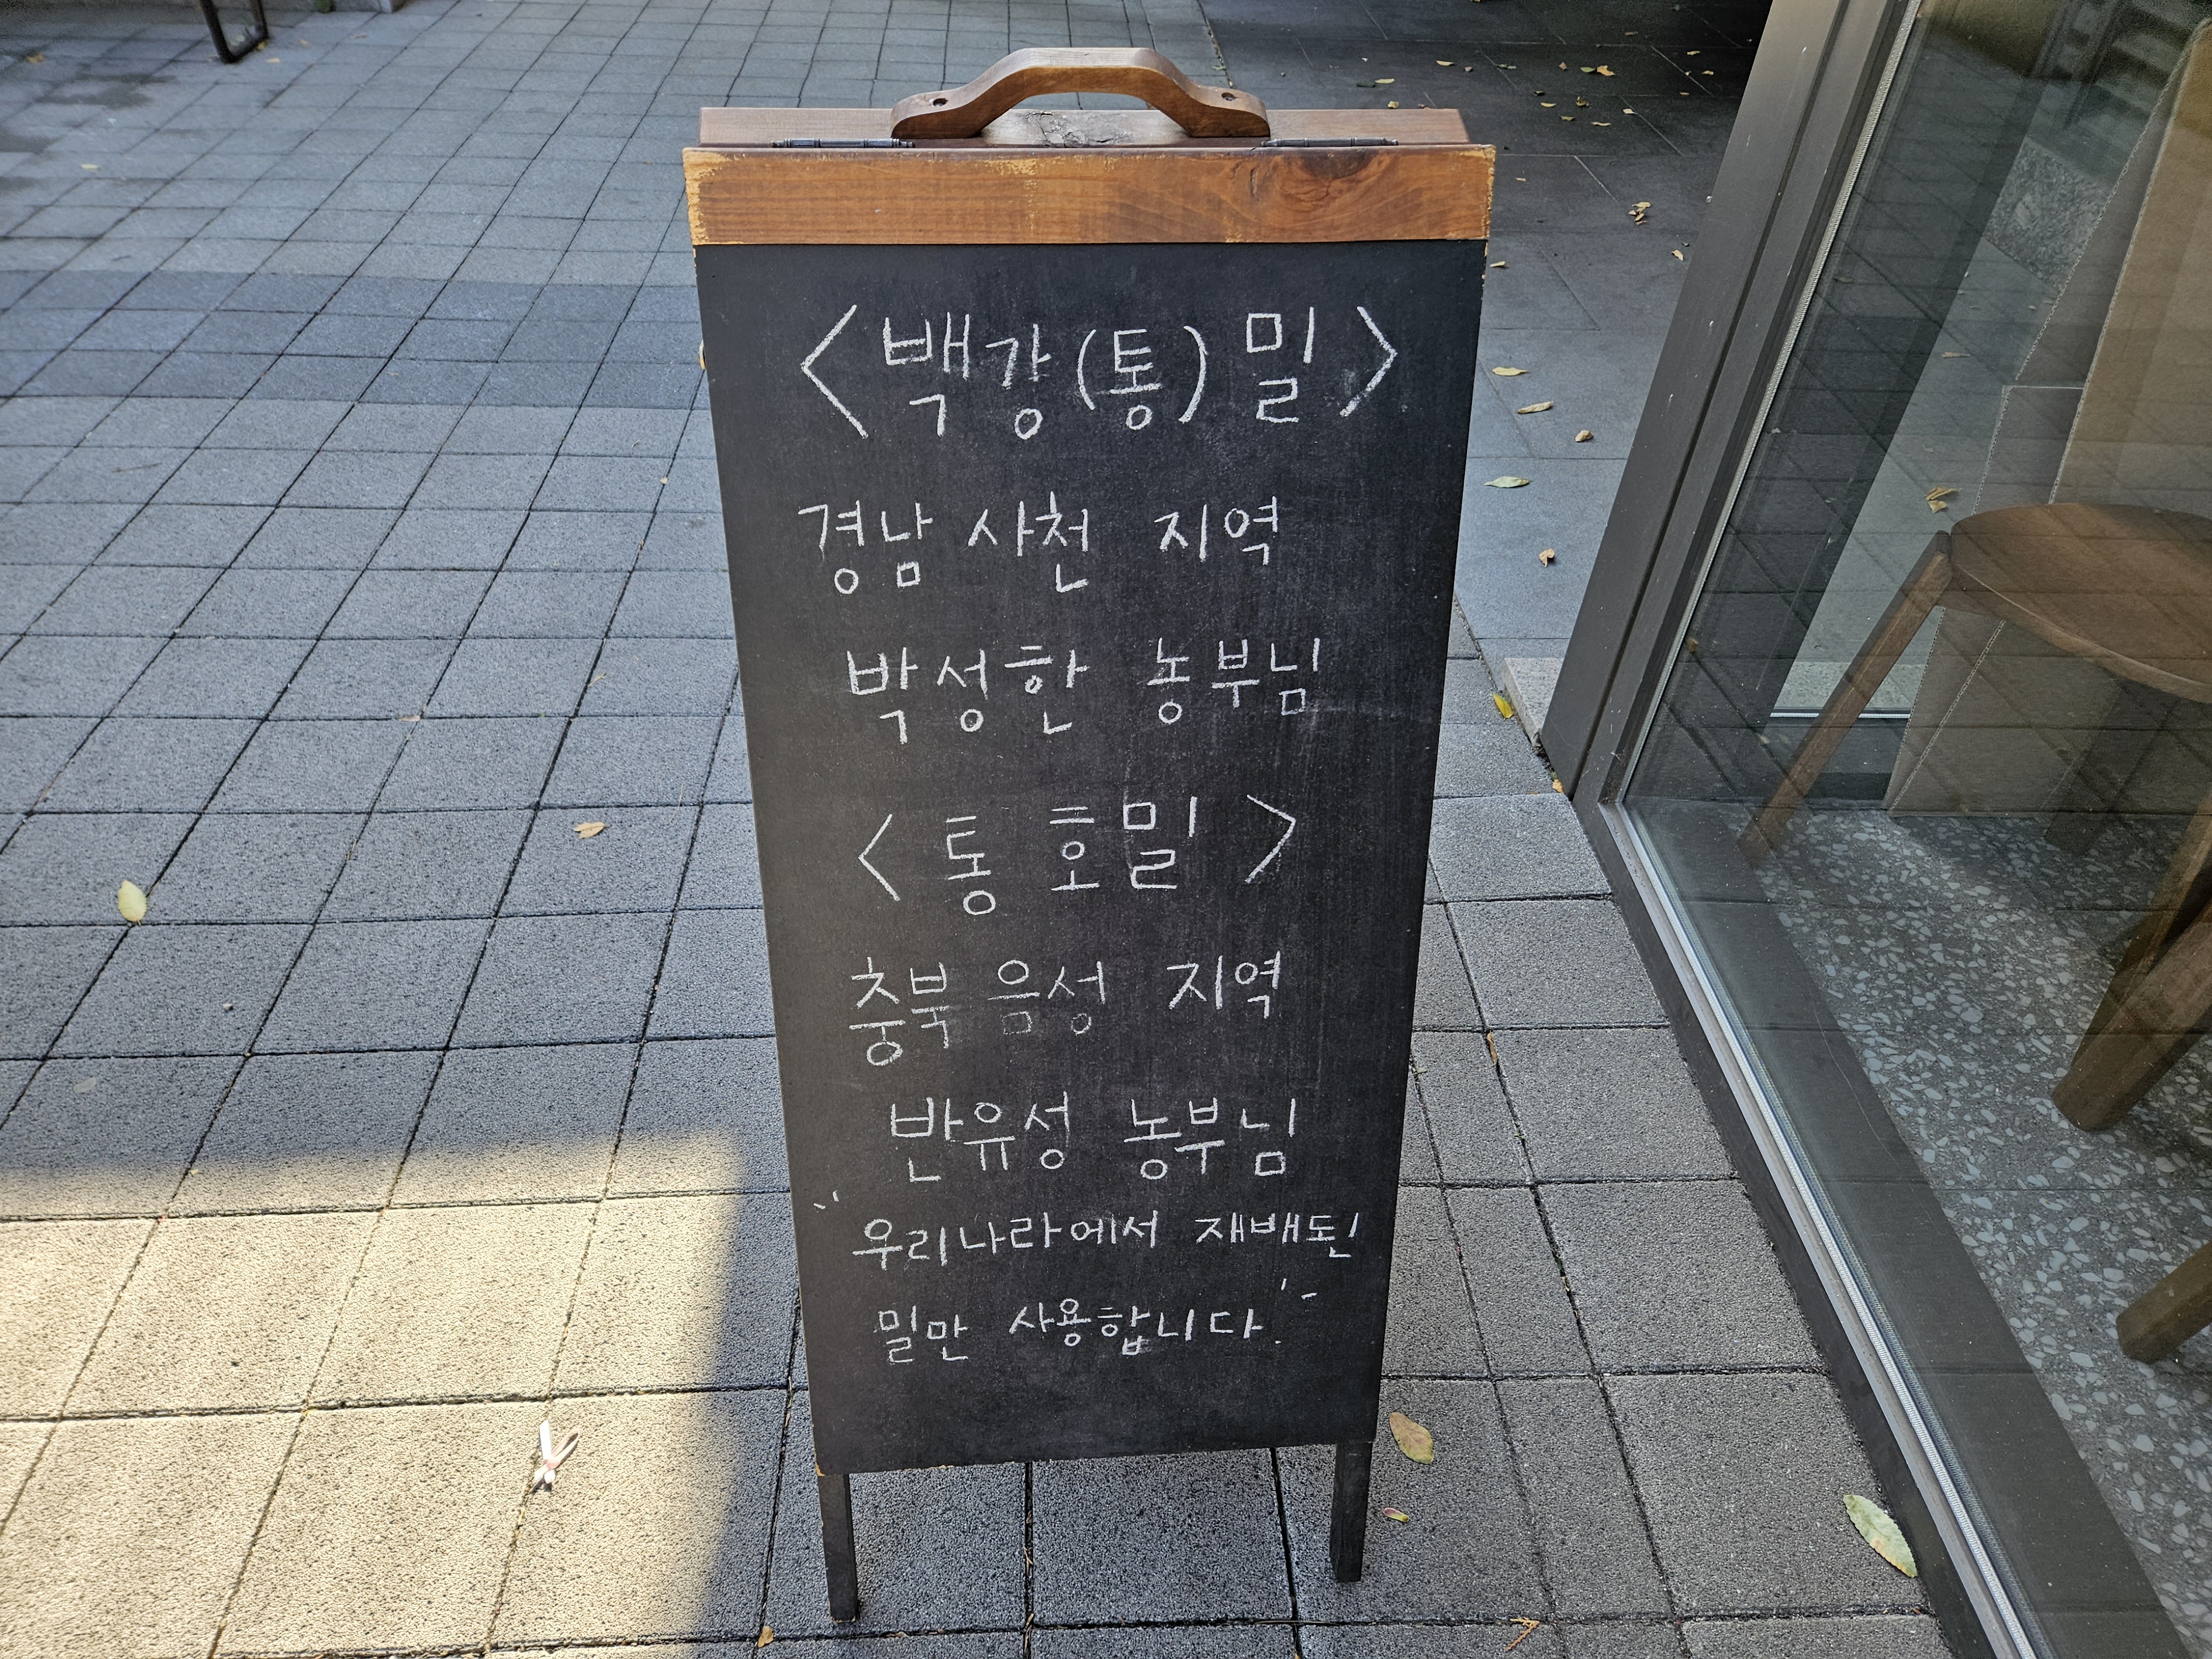 <백강(통)밀>
경남 사천 지역
박성한 농부님
<통 호밀>
충북 음성 지역
반유성 농부님
"우리나라에서 재배된
밀만 사용합니다."